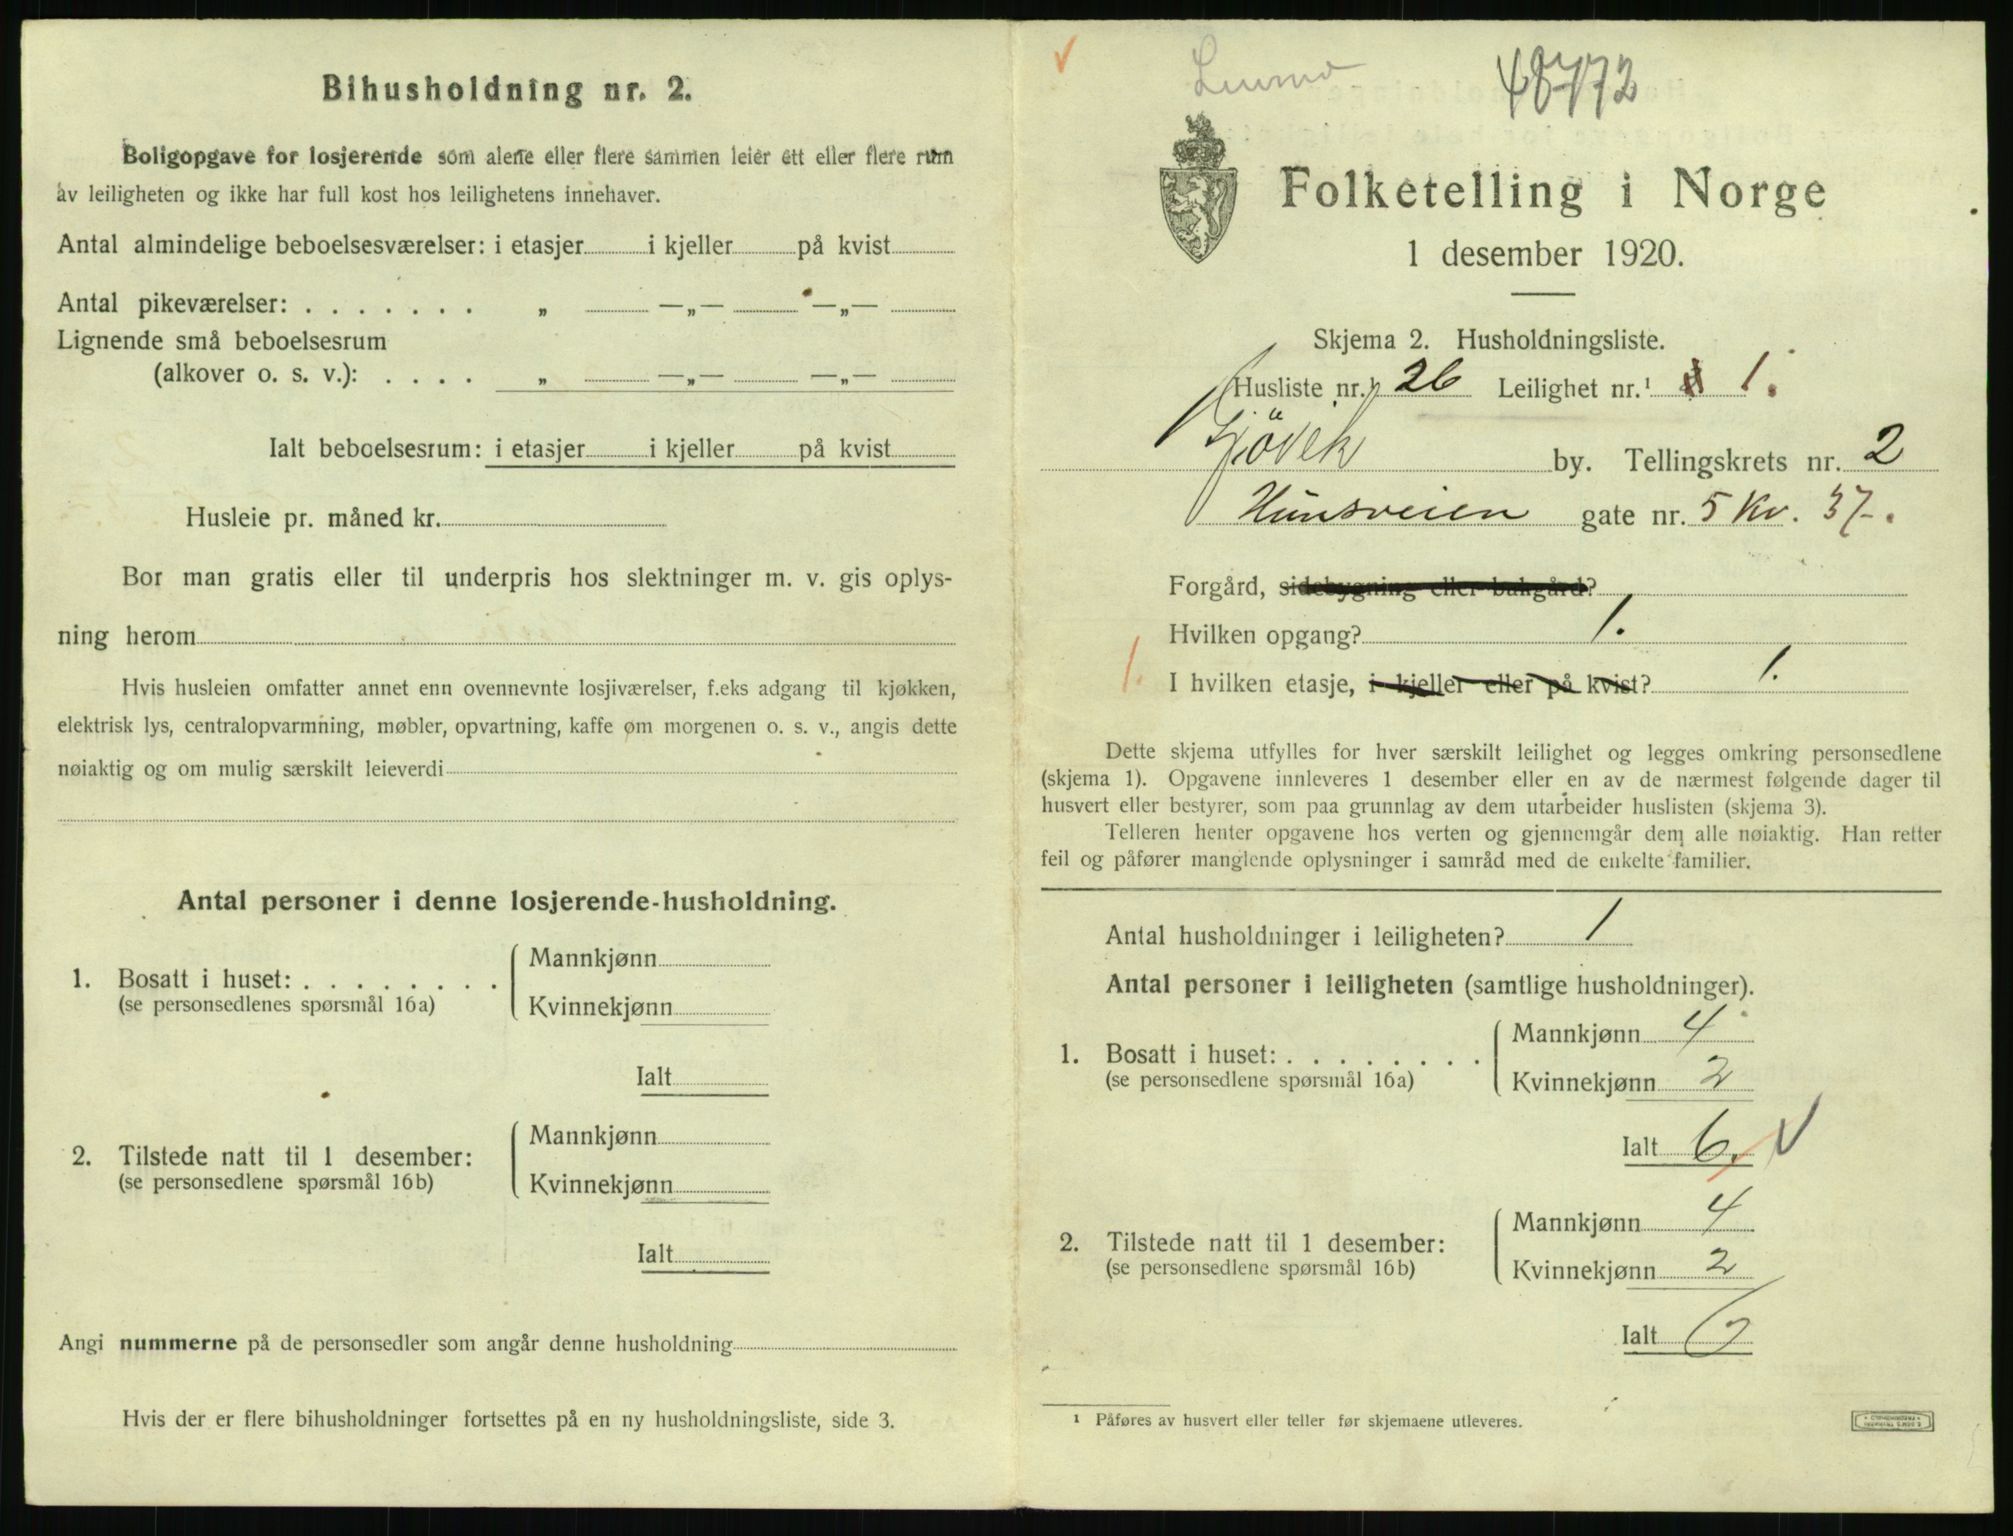 Bihusholdning nr. 2.
Boligopgave for losjerende som alene eller flere sammen leier ett eller flere rum
av leiligheten og ikke har full kost hos leilighetens innehaver.
Antal almindelige beboelsesværelser: i etasjer i kjeller på kvist
Antal pikeværelser: . . . . . . . „ —„— —„—
Lignende små beboelsesrum
(alkover o. s. v.): . . . . „ —„— —„—
Ialt beboelsesrum: i etasjer i kjeller på kvist
Husleie pr. måned kr.
Bor man gratis eller til underpris hos slektninger m. v. gis oplys-
ning herom
Hvis husleien omfatter annet enn ovennevnte losjiværelser, f.eks adgang til kjøkken,
elektrisk lys, centralopvarmning, møbler, opvartning, kaffe om morgenen o. s. v., angis dette
nøiaktig og om mulig særskilt leieverdi
Antal personer i denne losjerende-husholdning.
1. Bosatt i huset: . . . . . . . . Mannkjønn
(se personsedlenes spørsmål 16a) Kvinnekjønn
Ialt
2. Tilstede natt til 1 desember: Mannkjønn
(se personsedlene spørsmål 16b) Kvinnekjønn
Ialt
Angi nummerne på de personsedler som angår denne husholdning
Hvis der er flere bihusholdninger fortsettes på en ny husholdningsliste, side 3.
48772
Folketelling i Norge
1 desember 1920.
Skjema 2. Husholdningsliste.
Husliste nr.¹ 26 Leilighet nr.¹ 1.
Gjövik by. Tellingskrets nr. 2
Hunsveien gate nr. 5 Kv. 37.
Forgård, sidebygning eller bakgård?
Hvilken opgang? 1.
1. I hvilken etasje, i kjeller eller på kvist? 1.
Dette skjema utfylles for hver særskilt leilighet og legges omkring personsedlene
(skjema 1). Opgavene innleveres 1 desember eller en av de nærmest følgende dager til
husvert eller bestyrer, som paa grunnlag av dem utarbeider huslisten (skjema 3).
Telleren henter opgavene hos verten og gjennemgår dem alle nøiaktig. Han retter
feil og påfører manglende oplysninger i samråd med de enkelte familier.
Antal husholdninger i leiligheten? 1
Antal personer i leiligheten (samtlige husholdninger).
1. Bosatt i huset: . . . . . . . . Mannkjønn 4
(se personsedlene spørsmål 16a) Kvinnekjønn 2
Ialt 6.
2. Tilstede natt til 1 desember: Mannkjønn 4
(se personsedlene spørsmål 16b) Kvinnekjønn 2
Ialt 6
¹ Påføres av husvert eller teller før skjemaene utleveres.